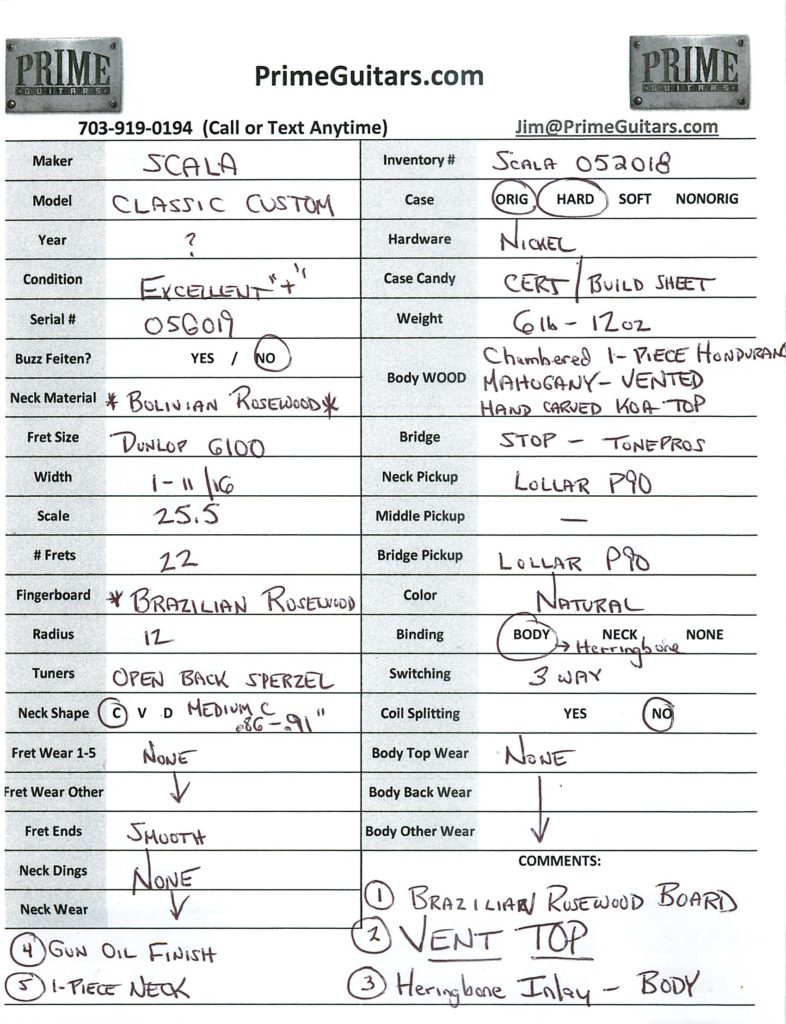 PRIME
GUITARS
PrimeGuitars.com
PRIME
GUITARS
703-919-0194 (Call or Text Anytime)
Jim@PrimeGuitars.com
Maker SCALA
Inventory # SCALA 052018
Model CLASSIC CUSTOM
Case ORIG HARD SOFT NONORIG
Year ?
Hardware NICKEL
Condition EXCELLENT "+"
Case Candy CERT / BUILD SHEET
Serial # 05G019
Weight 6lb - 12oz
Buzz Feiten? YES / NO
Body WOOD Chambered 1-PIECE HONDURAN
MAHOGANY - VENTED
HAND CARVED KOA TOP
Neck Material * BOLIVIAN ROSEWOOD *
Fret Size DUNLOP 6100
Bridge STOP - TONEPROS
Width 1-11/16
Neck Pickup LOLLAR P90
Scale 25.5
Middle Pickup —
# Frets 22
Bridge Pickup LOLLAR P90
Fingerboard * BRAZILIAN ROSEWOOD
Color NATURAL
Radius 12
Binding BODY NECK NONE
→ Herringbone
Tuners OPEN BACK SPERZEL
Switching 3 WAY
Neck Shape C V D MEDIUM C
.86 - .91"
Coil Splitting YES NO
Fret Wear 1-5 NONE
Body Top Wear NONE
Fret Wear Other ↓
Body Back Wear
Fret Ends SMOOTH
Body Other Wear ↓
Neck Dings NONE
Neck Wear ↓
COMMENTS:
① BRAZILIAN ROSEWOOD BOARD
② VENT TOP
③ Heringbone Inlay - BODY
④ GUN OIL FINISH
⑤ 1-PIECE NECK